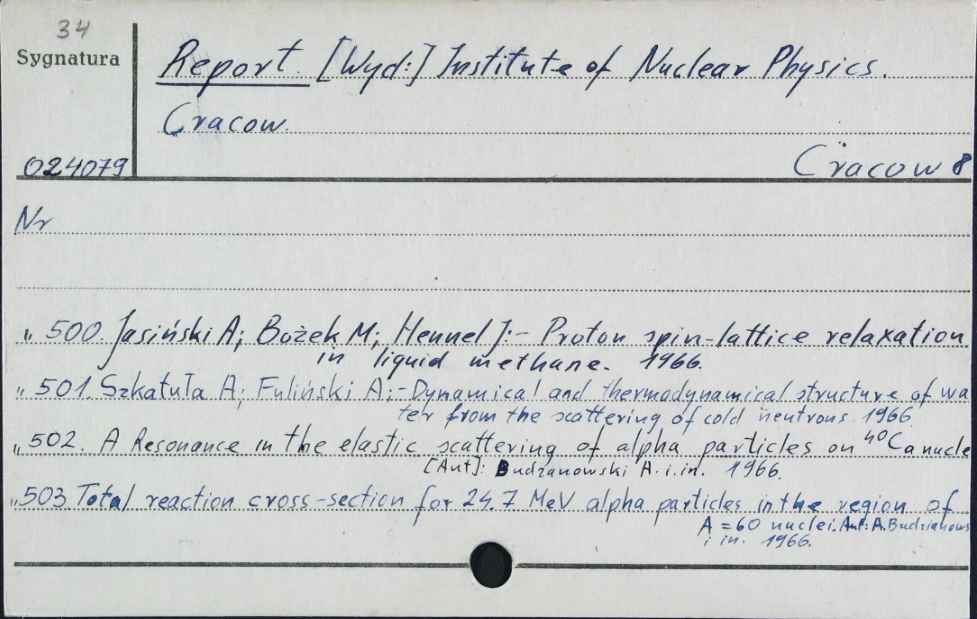 34
Sygnatura
Report. [Wyd:] Institute of Nuclear Physics.
Cracow.
024079
Cracow 8
Nr
" 500. Jasiński A; Bożek M; Hennel J:- Proton spin-lattice relaxation
in liquid methane. 1966.
" 501. Szkatuła A; Fuliński A:-Dynamical and thermodynamical structure of wa
ter from the scattering of cold neutrons. 1966.
" 502. A Resonance in the elastic scattering of alpha particles on ⁴⁰Ca nucle
[Aut]: Budzanowski A. i.in. 1966.
" 503. Total reaction cross-section for 24.7 MeV alpha particles in the region of
A = 60 nuclei. Aut: A. Budzanows
i in. 1966.